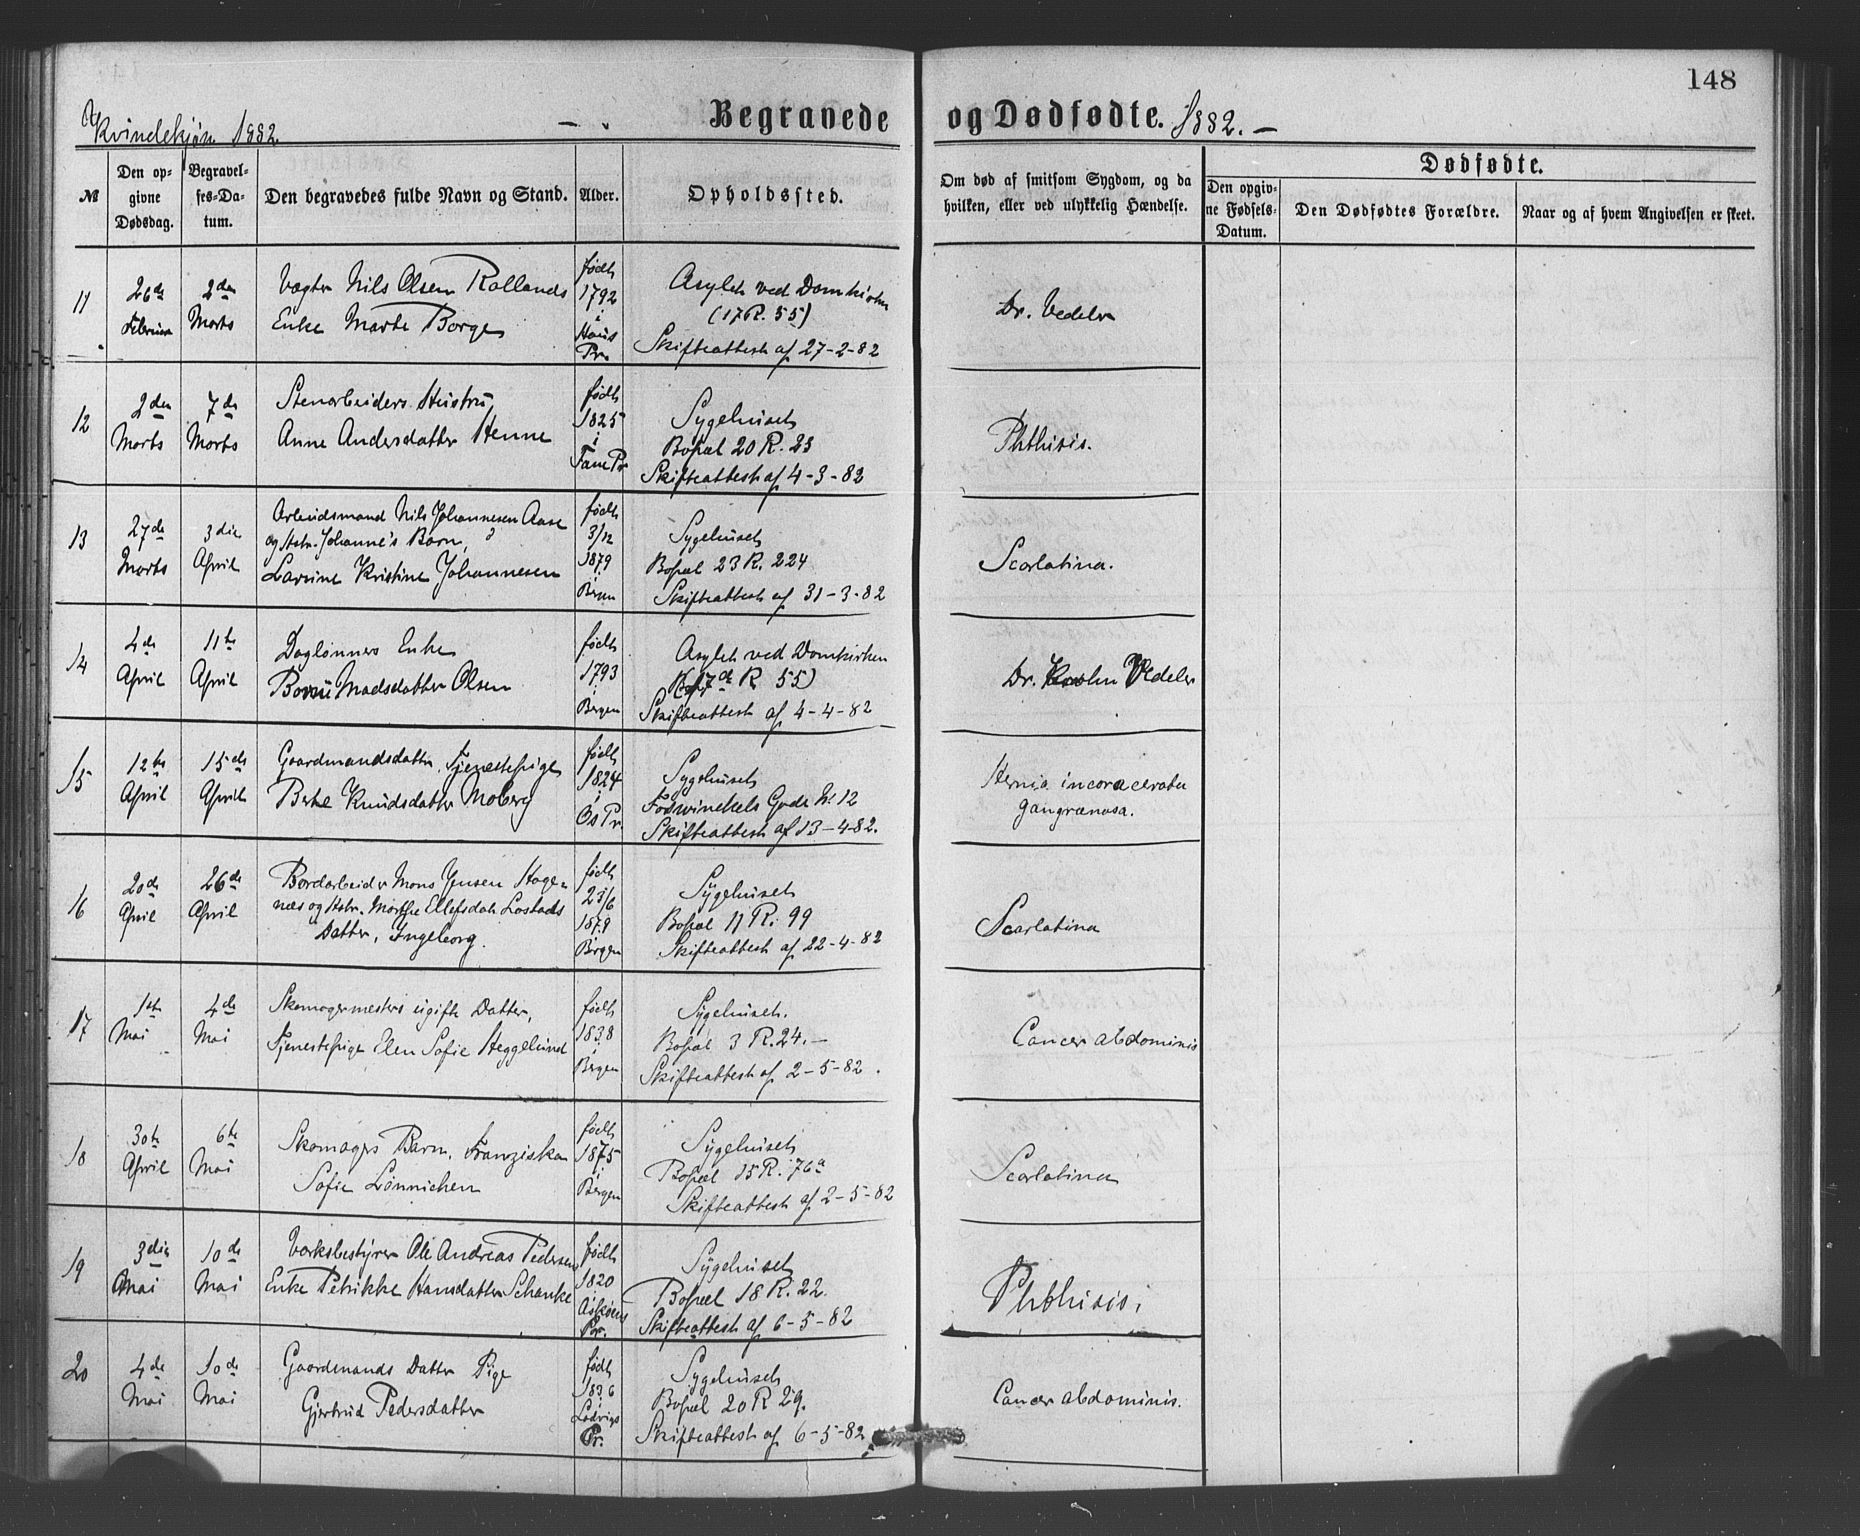 148
Kvindekjøn 1882.
Begravede og Dødfødte. 1882.
№
Den opgivne Dødsdag.
Begravelses-Datum.
Den begravedes fulde Navn og Stand.
Alder.
Opholdssted.
Om død af smitsom Sygdom, og da hvilken, eller ved ulykkelig Hændelse.
Dødfødte.
Den opgivne Fødsels-Datum.
Den Dødfødtes Forældre.
Naar og af hvem Angivelsen er skeet.
11
26de Februar
2den Marts
Vægter Nils Olsen Rollands
Enke Marte Borge
født 1792 i Haus Pr.
Asylet ved Domkirken
(17 R. 55)
Skifteattest af 27-2-82
Dr. Vedeler
12
2den Marts
7de Marts
Stenarbeiders Hustru,
Anne Andersdatter Henne
født 1825 i Fane Pr
Sygehuset
Bopæl 20 R. 23
Skifteattest af 4-3-82
Phthisis.
13
27de Marts
3die April
Arbeidsmand Nils Johannesen Aase
og Hstr. Johanne's Barn,
Larsine Kristine Johannesen
født 3/12 1879 i Bergen
Sygehuset
Bopæl 23 R. 224
Skifteattest af 31-3-82
Scarlatina.
14
4de April
11te April
Daglønners Enke
Madsdatter Olsen
født 1793 i Bergen
Asylet ved Domkirken
(17de R. 55)
Skifteattest af 4-4-82
Dr. Vedeler
15
12te April
15de April
Gaardmandsdatter, Tjenestepige
Berte Knudsdatter Moberg
født 1824 i Os Pr.
Sygehuset
Foswinckels Gade No 12
Skifteattest af 13-4-82.
Hernia incaracerata
gangrænosa.
16
20de April
26de April
Bordarbeider Mons Jensen Hage-
næs og Hstr. Marthe Ellefsdatr Lostads
Datter, Ingeborg.
født 23/6 1879 Bergen
Sygehuset
Bopæl 11 R. 99
Skifteattest af 22-4-82
Scarlatina
17
1ste Mai
4de Mai
Skomagermesters ugifte Datter,
Tjenestepige Elen Sofie Heggelund
født 1838 i Bergen
Sygehuset.
Bopæl 3 R. 24.
Skifteattest af 2-5-82.
Cancer abdominis
18
30te April
6te Mai
Skomagers Barn, Franziska
Sofie Lönnichen
født 1875 i Bergen
Sygehuset
Bopæl 15 R. 76a
Skifteattest af 2-5-82
Scarlatina
19
3die Mai
10de Mai
Værksbestyrer Ole Andreas Pedersens
Enke Petrikke Hansdatter Schanke
født 1820 i Askøens Pr.
Sygehuset
Bopæl 18 R. 22.
Skifteattest af 6-5-82
Phthisis.
20
4de Mai
10de Mai
Gaardmands Datter Pige
Gjertrud Pedersdatter
født 1836 i Ladvigs Pr.
Sygehuset
Bopæl 20 R 29.
Skifteattest af 6-5-82
Cancer abdominis.